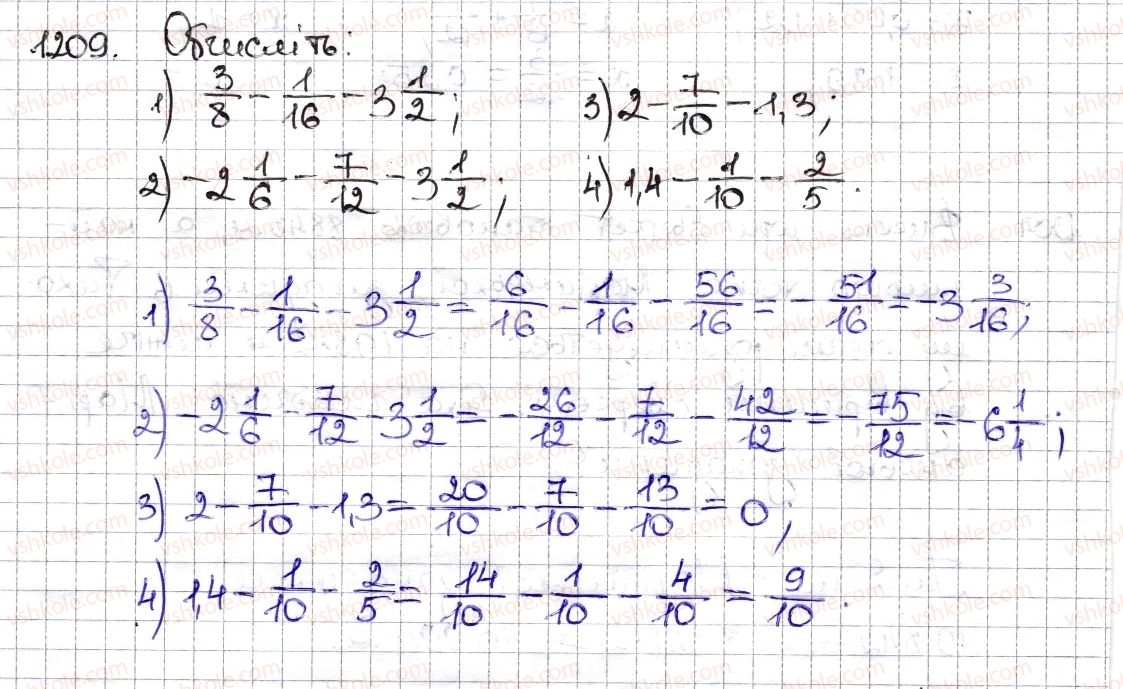 1209. Обчисліть:
1) 3/8 - 1/16 - 3 1/2; 3) 2 - 7/10 - 1,3;
2) -2 1/6 - 7/12 - 3 1/2; 4) 1,4 - 1/10 - 2/5.
1) 3/8 - 1/16 - 3 1/2 = 6/16 - 1/16 - 56/16 = - 51/16 = -3 3/16;
2) -2 1/6 - 7/12 - 3 1/2 = - 26/12 - 7/12 - 42/12 = - 75/12 = -6 1/4;
3) 2 - 7/10 - 1,3 = 20/10 - 7/10 - 13/10 = 0;
4) 1,4 - 1/10 - 2/5 = 14/10 - 1/10 - 4/10 = 9/10.
vshkole.com